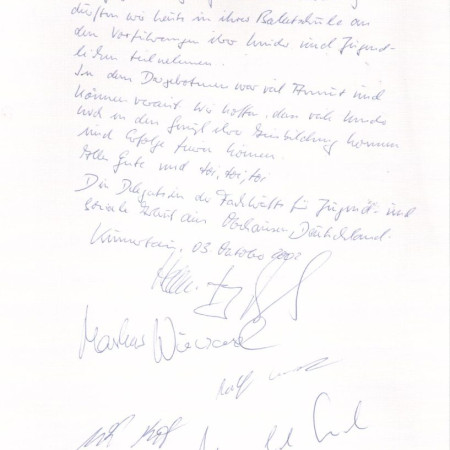 durften wir heute in ihrer Ballettschule an
den Vorführungen ihrer Kinder und Jugend-
lichen teilnehmen.
In dem Dargebotenen war viel Anmut und
Können vereint. Wir hoffen, dass viele Kinder
noch in den Genuß ihrer Ausbildung kommen
und Erfolge feiern können.
Alles Gute und toi, toi, toi
Die Delegation der Fachkräfte für Jugend- und
soziale Arbeit aus Deutschland.
03. Oktober 2002
Markus